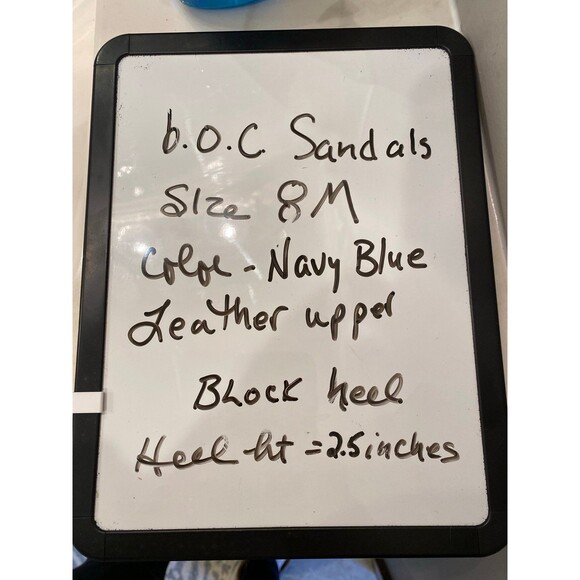 b.O.C. Sandals
Size 8M
Color - Navy Blue
Leather upper
Block heel
Heel ht = 2.5 inches